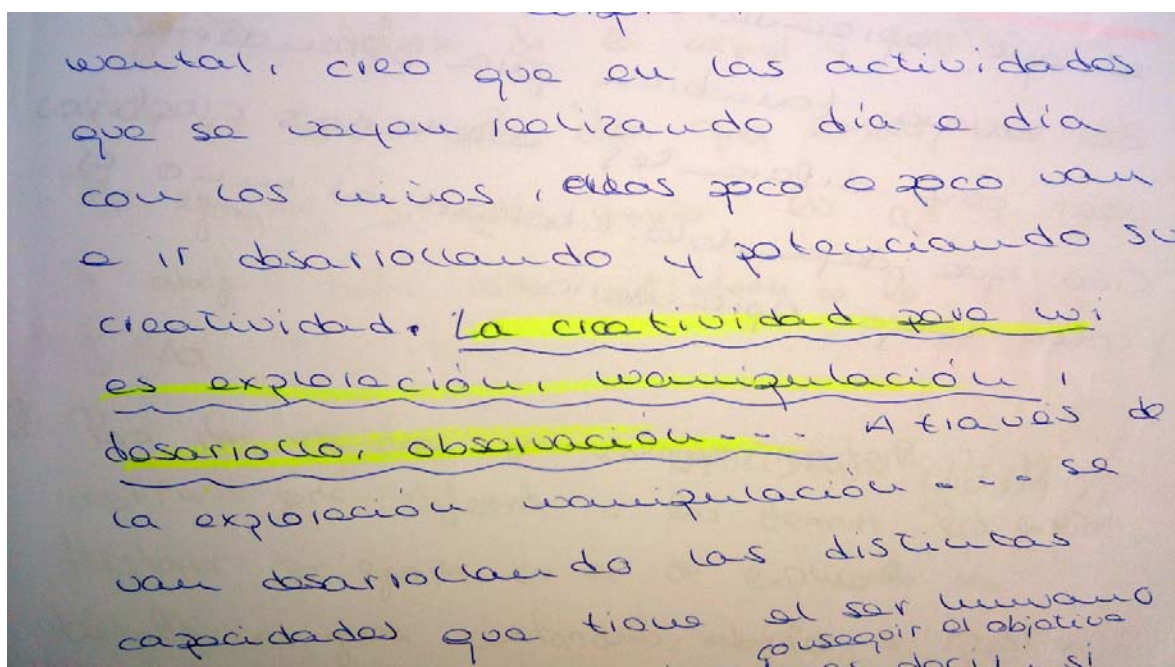 mental, creo que en las actividades
que se vayan realizando día a día
con los niños, ellos poco a poco van
a ir desarrollando y potenciando su
creatividad. La creatividad para mi
es exploración, manipulación,
desarrollo, observación... A través de
la exploración manipulación .... se
van desarrollando las distintas
capacidades que tiene el ser humano
conseguir el objetivo
es decir, si